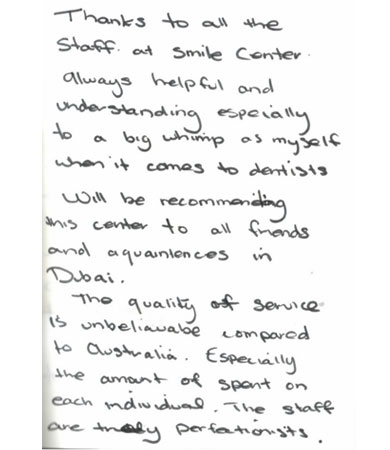 Thanks to all the
Staff. at Smile Center.
Always helpful and
understanding especially
to a big whimp as myself
when it comes to dentists
Will be recommending
this center to all friends
and aquaintences in
Dubai.
The quality of service
is unbeliavabe compared
to Australia. Especially
the amount of spent on
each individual. The staff
are truely perfectionists.